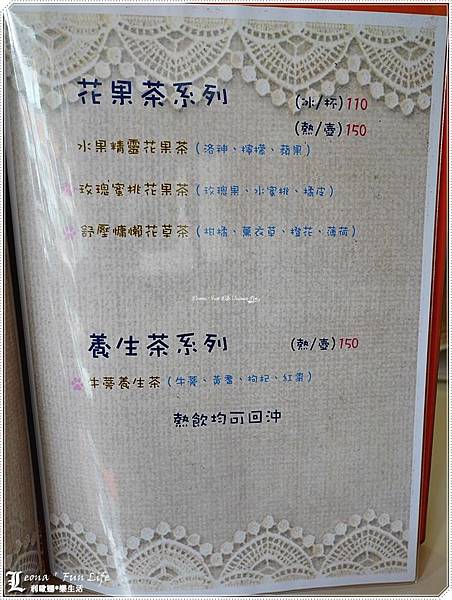 花果茶系列 (冰/杯)110
(熱/壺)150
水果精靈花果茶(洛神、檸檬、蘋果)
玫瑰蜜桃花果茶(玫瑰果、水蜜桃、橘皮)
舒壓慵懶花草茶(柑橘、薰衣草、橙花、薄荷)
養生茶系列 (熱/壺)150
牛蒡養生茶(牛蒡、黃耆、枸杞、紅棗)
熱飲均可回沖
Leona's Fun Life
利歐娜*樂生活